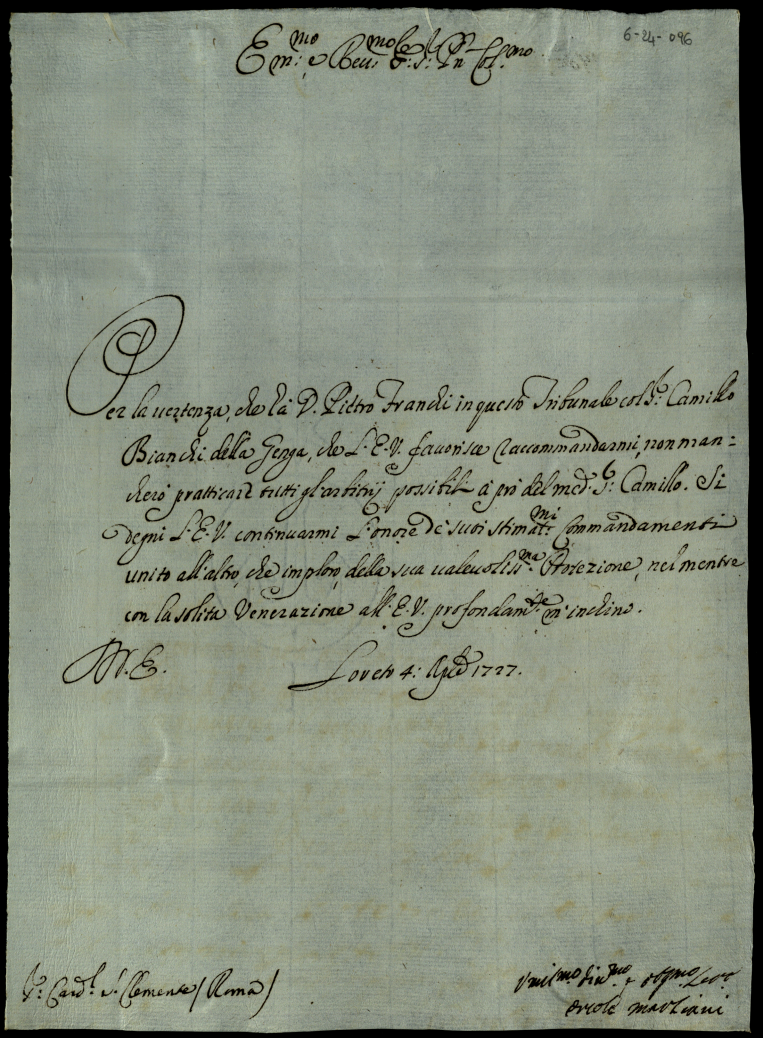 6-24-096
Em:mo e Reu:mo Sig:r Sig:r Pn Col:mo
Per la uertenza, che hà D. Pietro Franchi in questo Tribunale col Sig:r Camillo
Bianchi della Genga, che L'E.V. fauorisce raccommandarmi, non man=
cherò pratticare tutti gl'arbitrij possibili à prò del med:o Sig:r Camillo. Si
degni L'E.V. continuarmi l'onore de' suoi stimat:mi Commandamenti
unito all'altro, che imploro, della sua ualeuoliss:ma Protezione, nel mentre
con la solita Venerazione all'E.V. profondam:te m'inchino.
D.V.E. Loreto 4: 1727.
Sig:r Card:l S. Clemente / Roma /
Vmil:mo diu:mo et obg:mo Ser:r
Ercole